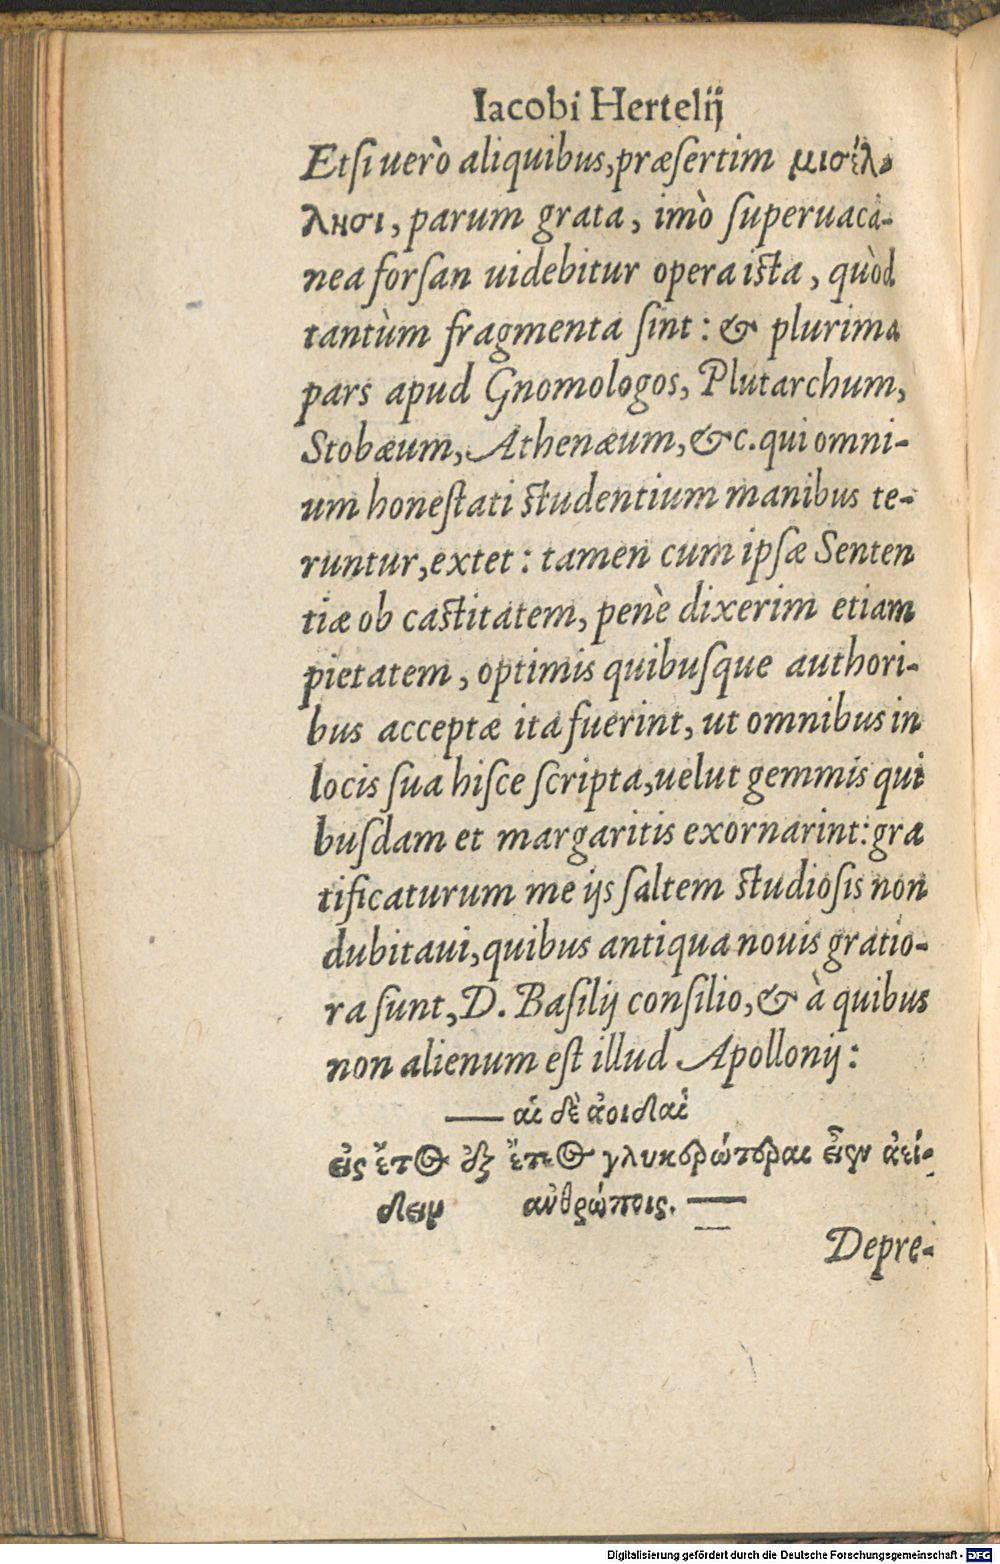 Iacobi Hertelij
Etsi uerò aliquibus, præsertim μισέλ-
λησι, parum grata, imò superuacá-
nea forsan uidebitur opera ista, quòd
tantùm fragmenta sint: & plurima
pars apud Gnomologos, Plutarchum,
Stobæum, Athenæum, &c. qui omni-
um honestati studentium manibus te-
runtur, extet: tamen cum ipsæ Senten
tiæ ob castitatem, penè dixerim etiam
pietatem, optimis quibusque authori-
bus acceptæ ita fuerint, ut omnibus in
locis sua hisce scripta, uelut gemmis qui
busdam et margaritis exornarint: gra
tificaturum me ijs saltem studiosis non
dubitaui, quibus antiqua nouis gratio-
ra sunt, D. Basilij consilio, & à quibus
non alienum est illud Apollonij:
— αἱ δὲ ἀοιδαὶ
εἰς ἔτος ἐξ ἔτεος γλυκερώτεραι εἶεν ἀεί-
δειν ἀνθρώποις. —
Depre-
Digitalisierung gefördert durch die Deutsche Forschungsgemeinschaft - DFG